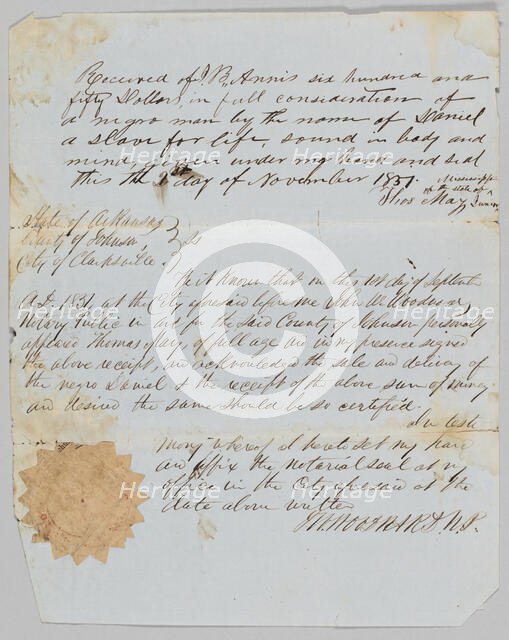 Received of J. B. Annis six hundred and
fifty Dollars, in full consideration of
a negro man by the name of Daniel
a slave for life, sound in body and
mind, given under my hand and seal
this the 1st day of November 1851.
Mississippi
of the state of
Thos May Junior
State of Arkansas
County of Johnson
City of Clarksville } ss
Be it Known that on this 1st day of Septembr
A.D. 1851, at the City aforesaid before me John W. Woodson
Notary Public in and for the Said County of Johnson personally
appeared Thomas May, of full age and in my presence signed
the above receipt, and acknowledged the sale and delivery of
the negro Daniel & the receipt of the above sum of money
and desired the same should be so certified.
In testi
mony whereof I hereto set my hand
and affix the notarial seal at my
office in the City aforesaid at the
date above written
N.P.
Heritage Images
Heritage Images
Heritage Images
Heritage Images
Heritage Images
Heritage Images